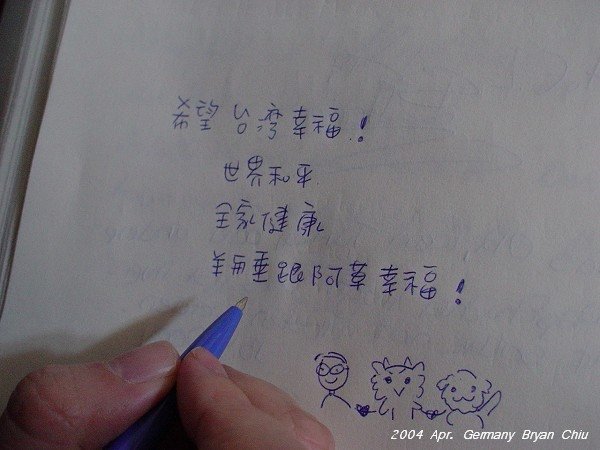 希望台湾幸福！
世界和平
全家健康
垂跟阿草幸福！
2004 Apr. Germany Bryan Chiu